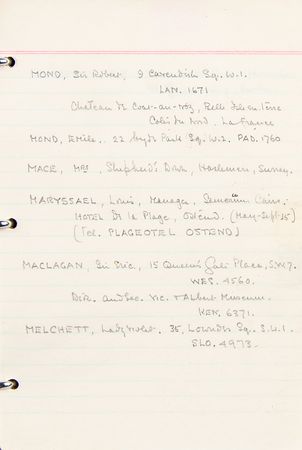 MOND, Sir Robert, 9 Cavendish Sq. W.1.
LAN. 1671
Chateau de Coat-an-Noz, Belle Isle-en-Terre
Côtes du Nord. La France
MOND, Emile, 22 Hyde Park Sq. W.2. PAD. 1760
MACE, Mrs, Shepherd's Down, Haslemere, Surrey.
MARYSSAEL, Louis, Manager, Cairo.
HOTEL de la Plage, Ostend. (May-Sept. 15)
(Tel. PLAGEOTEL OSTEND)
MACLAGAN, Sir Eric, 15 Queen's Gate Place, S.W.7.
WES. 4560.
Dir. and Sec. Vic. & Albert Museum.
KEN. 6371.
MELCHETT, Lady Violet. 35, Lowndes Sq. S.W.1.
SLO. 4973.